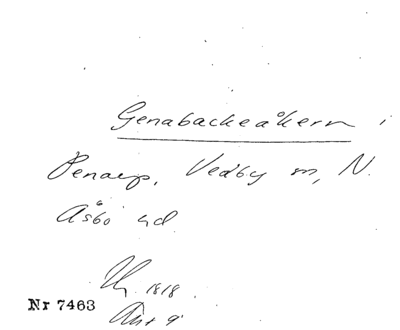 Genabackeåkern i
Penarp, Vedby sn, N.
Åsbo hd.
1818
Nr 7463